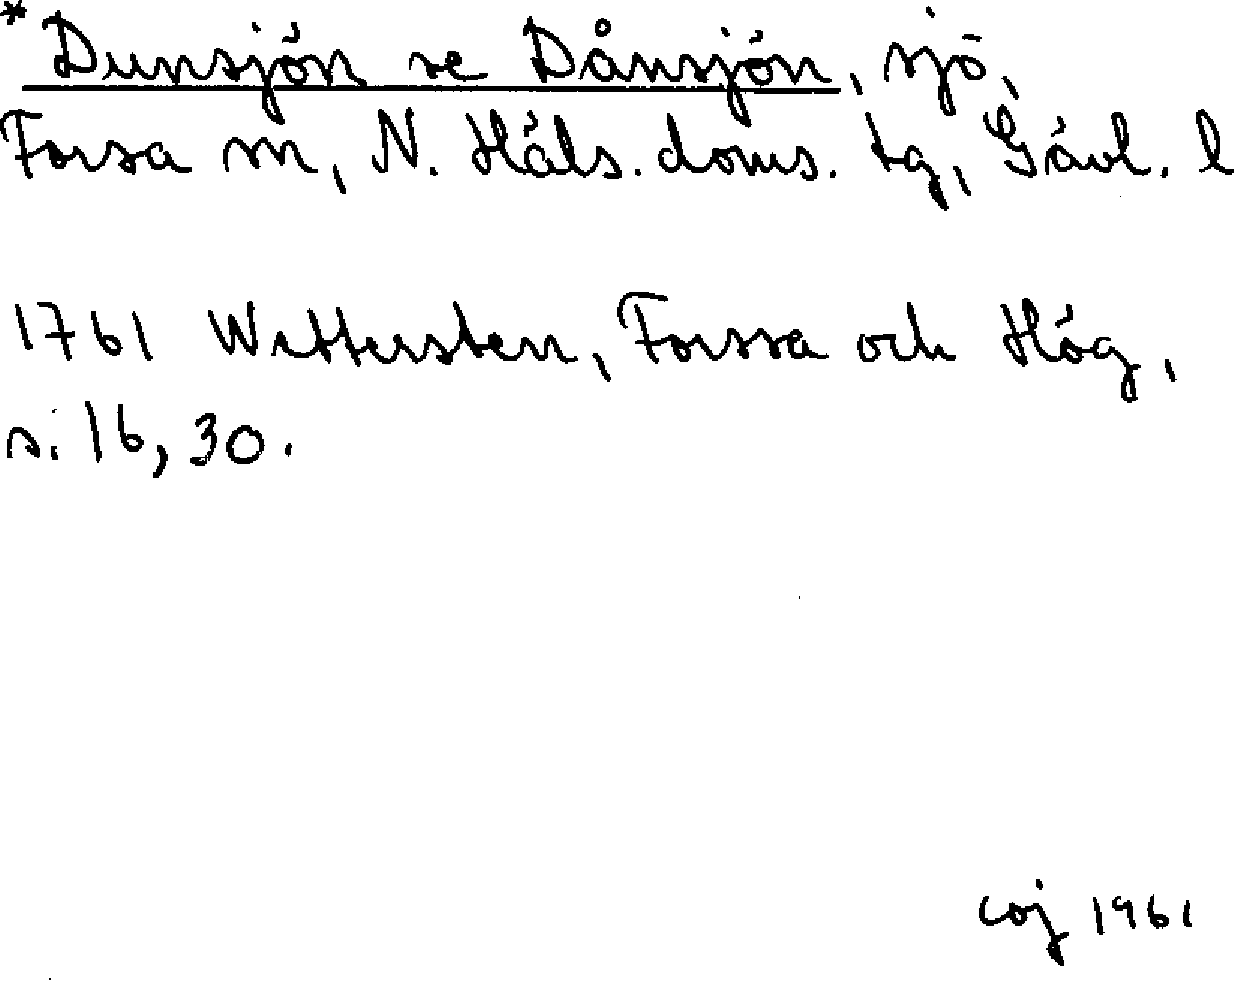 * Dunsjön se Dånsjön, sjö,
Forsa sn, N. Häls. doms. tg, Gävl. l
1761 Wettersten, Forssa och Hög,
s. 16, 30.
coj 1961